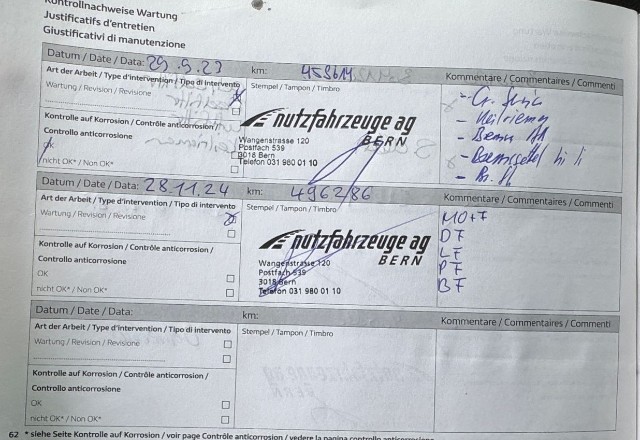 Kontrollnachweise Wartung
Justificatifs d'entretien
Giustificativi di manutenzione
Datum / Date / Data: 29.9.23 km: 458614
Kommentare / Commentaires / Commenti
Art der Arbeit / Type d'intervention / Tipo di intervento
Stempel / Tampon / Timbro
Wartung / Revision / Revisione
Kontrolle auf Korrosion / Contrôle anticorrosion /
Controllo anticorrosione
OK
nicht OK* / Non OK*
nutzfahrzeuge ag
BERN
Wangenstrasse 120
Postfach 539
3018 Bern
Telefon 031 980 01 10
Datum / Date / Data: 28.11.24 km: 496286
Kommentare / Commentaires / Commenti
Art der Arbeit / Type d'intervention / Tipo di intervento
Stempel / Tampon / Timbro
Wartung / Revision / Revisione
Kontrolle auf Korrosion / Contrôle anticorrosion /
Controllo anticorrosione
OK
nicht OK* / Non OK*
nutzfahrzeuge ag
BERN
Wangenstrasse 120
Postfach 539
3018 Bern
Telefon 031 980 01 10
MO+F
DF
LF
PF
BF
Datum / Date / Data: km:
Kommentare / Commentaires / Commenti
Art der Arbeit / Type d'intervention / Tipo di intervento
Stempel / Tampon / Timbro
Wartung / Revision / Revisione
Kontrolle auf Korrosion / Contrôle anticorrosion /
Controllo anticorrosione
OK
nicht OK* / Non OK*
62 * siehe Seite Kontrolle auf Korrosion / voir page Contrôle anticorrosion / vedere la pagina controllo anticorrosione